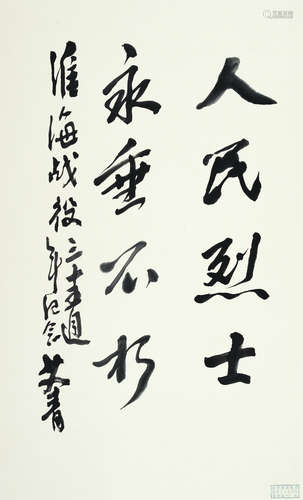 人民烈士
永垂不朽
淮海战役三十五周
年纪念 艾青